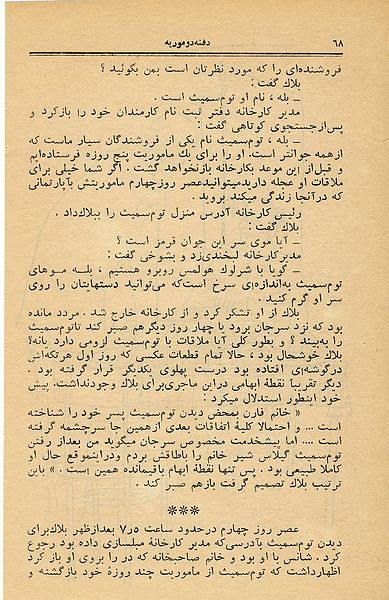 ۶۸
دفنه دوموریه
فروشنده‌ای را که مورد نظرتان است بمن بگوئید ؟
بلاك گفت :
ـ بله ، نام او توم‌سمیث است .
مدیر کارخانه دفتر ثبت نام کارمندان خود را بازکرد و
پس‌ازجستجوی کوتاهی گفت :
ـ بله ، توم‌سمیث نام یکی از فروشندگان سیار ماست که
ازهمه جوانتر است. او را برای یك ماموریت پنج روزه فرستاده‌ایم
و قبل‌از این موعد بکارخانه بازنخواهد گشت . اگر شما خیلی برای
ملاقات او عجله دارید‌میتوانیدعصر روزچهارم ماموریتش بآپارتمانی
که درآنجا زندگی میکند بروید .
رئیس کارخانه آدرس منزل توم‌سمیث را ببلاك‌داد .
بلاك گفت :
ـ آیا موی سر این جوان قرمز است ؟
مدیر کارخانه لبخندی‌زد و بشوخی گفت :
ـ گویا با شرلوك هولمس روبرو هستیم ، بلـه مـوهای
توم‌سمیث به‌اندازه‌ی سرخ است‌که می‌توانید دستهایتان را روی
سر او گرم کنید .
بلاك از او تشکر کرد و از کارخانه خارج شد . مردد مانده
بود که نزد سرجان برود یا چهار روز دیگرهم صبر کند تاتوم‌سمیث
را به‌بیند ؟ و بطور کلی آیا ملاقات با توم‌سمیث لزومی دارد یانه؟
بلاك خوشحال بود ، حالا تمام قطعات عکسی که روز اول هرتکه‌اش
درگوشه‌ای افتاده بود درست پهلوی یکدیگر قرار گرفته بود .
دیگر تقریباً نقطهٔ ابهامی دراین ماجری‌برای بلاك وجودنداشت، پیش
خود اینطور استدلال میکرد :
« خانم فارن بمحض دیدن توم‌سمیث پسر خود را شناخته
است ... و احتمالا کلیهٔ اتفاقات بعدی ازهمین جا سرچشمه گرفته
است .... اما پیشخدمت مخصوص سرجان میگوید من بعداز رفتن
توم‌سمیث گیلاس شیر خانم را باطاقش بردم ودراینموقع حال او
کاملا طبیعی بود . پس تنها نقطهٔ ابهام باقیمانده همین است . » باین
ترتیب بلاك تصمیم گرفت بازهم صبر کند .
***
عصر روز چهارم درحدود ساعت ۷٫۵ بعدازظهر بلاك‌برای
دیدن توم‌سمیث بآدرسی‌که مدیر کارخانهٔ مبلسازی داده بود رجوع
کرد . شانس با او بود و خانم صاحبخانه که در را بروی او باز کرد
اظهارداشت که توم‌سمیث از ماموریت چند روزهٔ خود بازگشته و